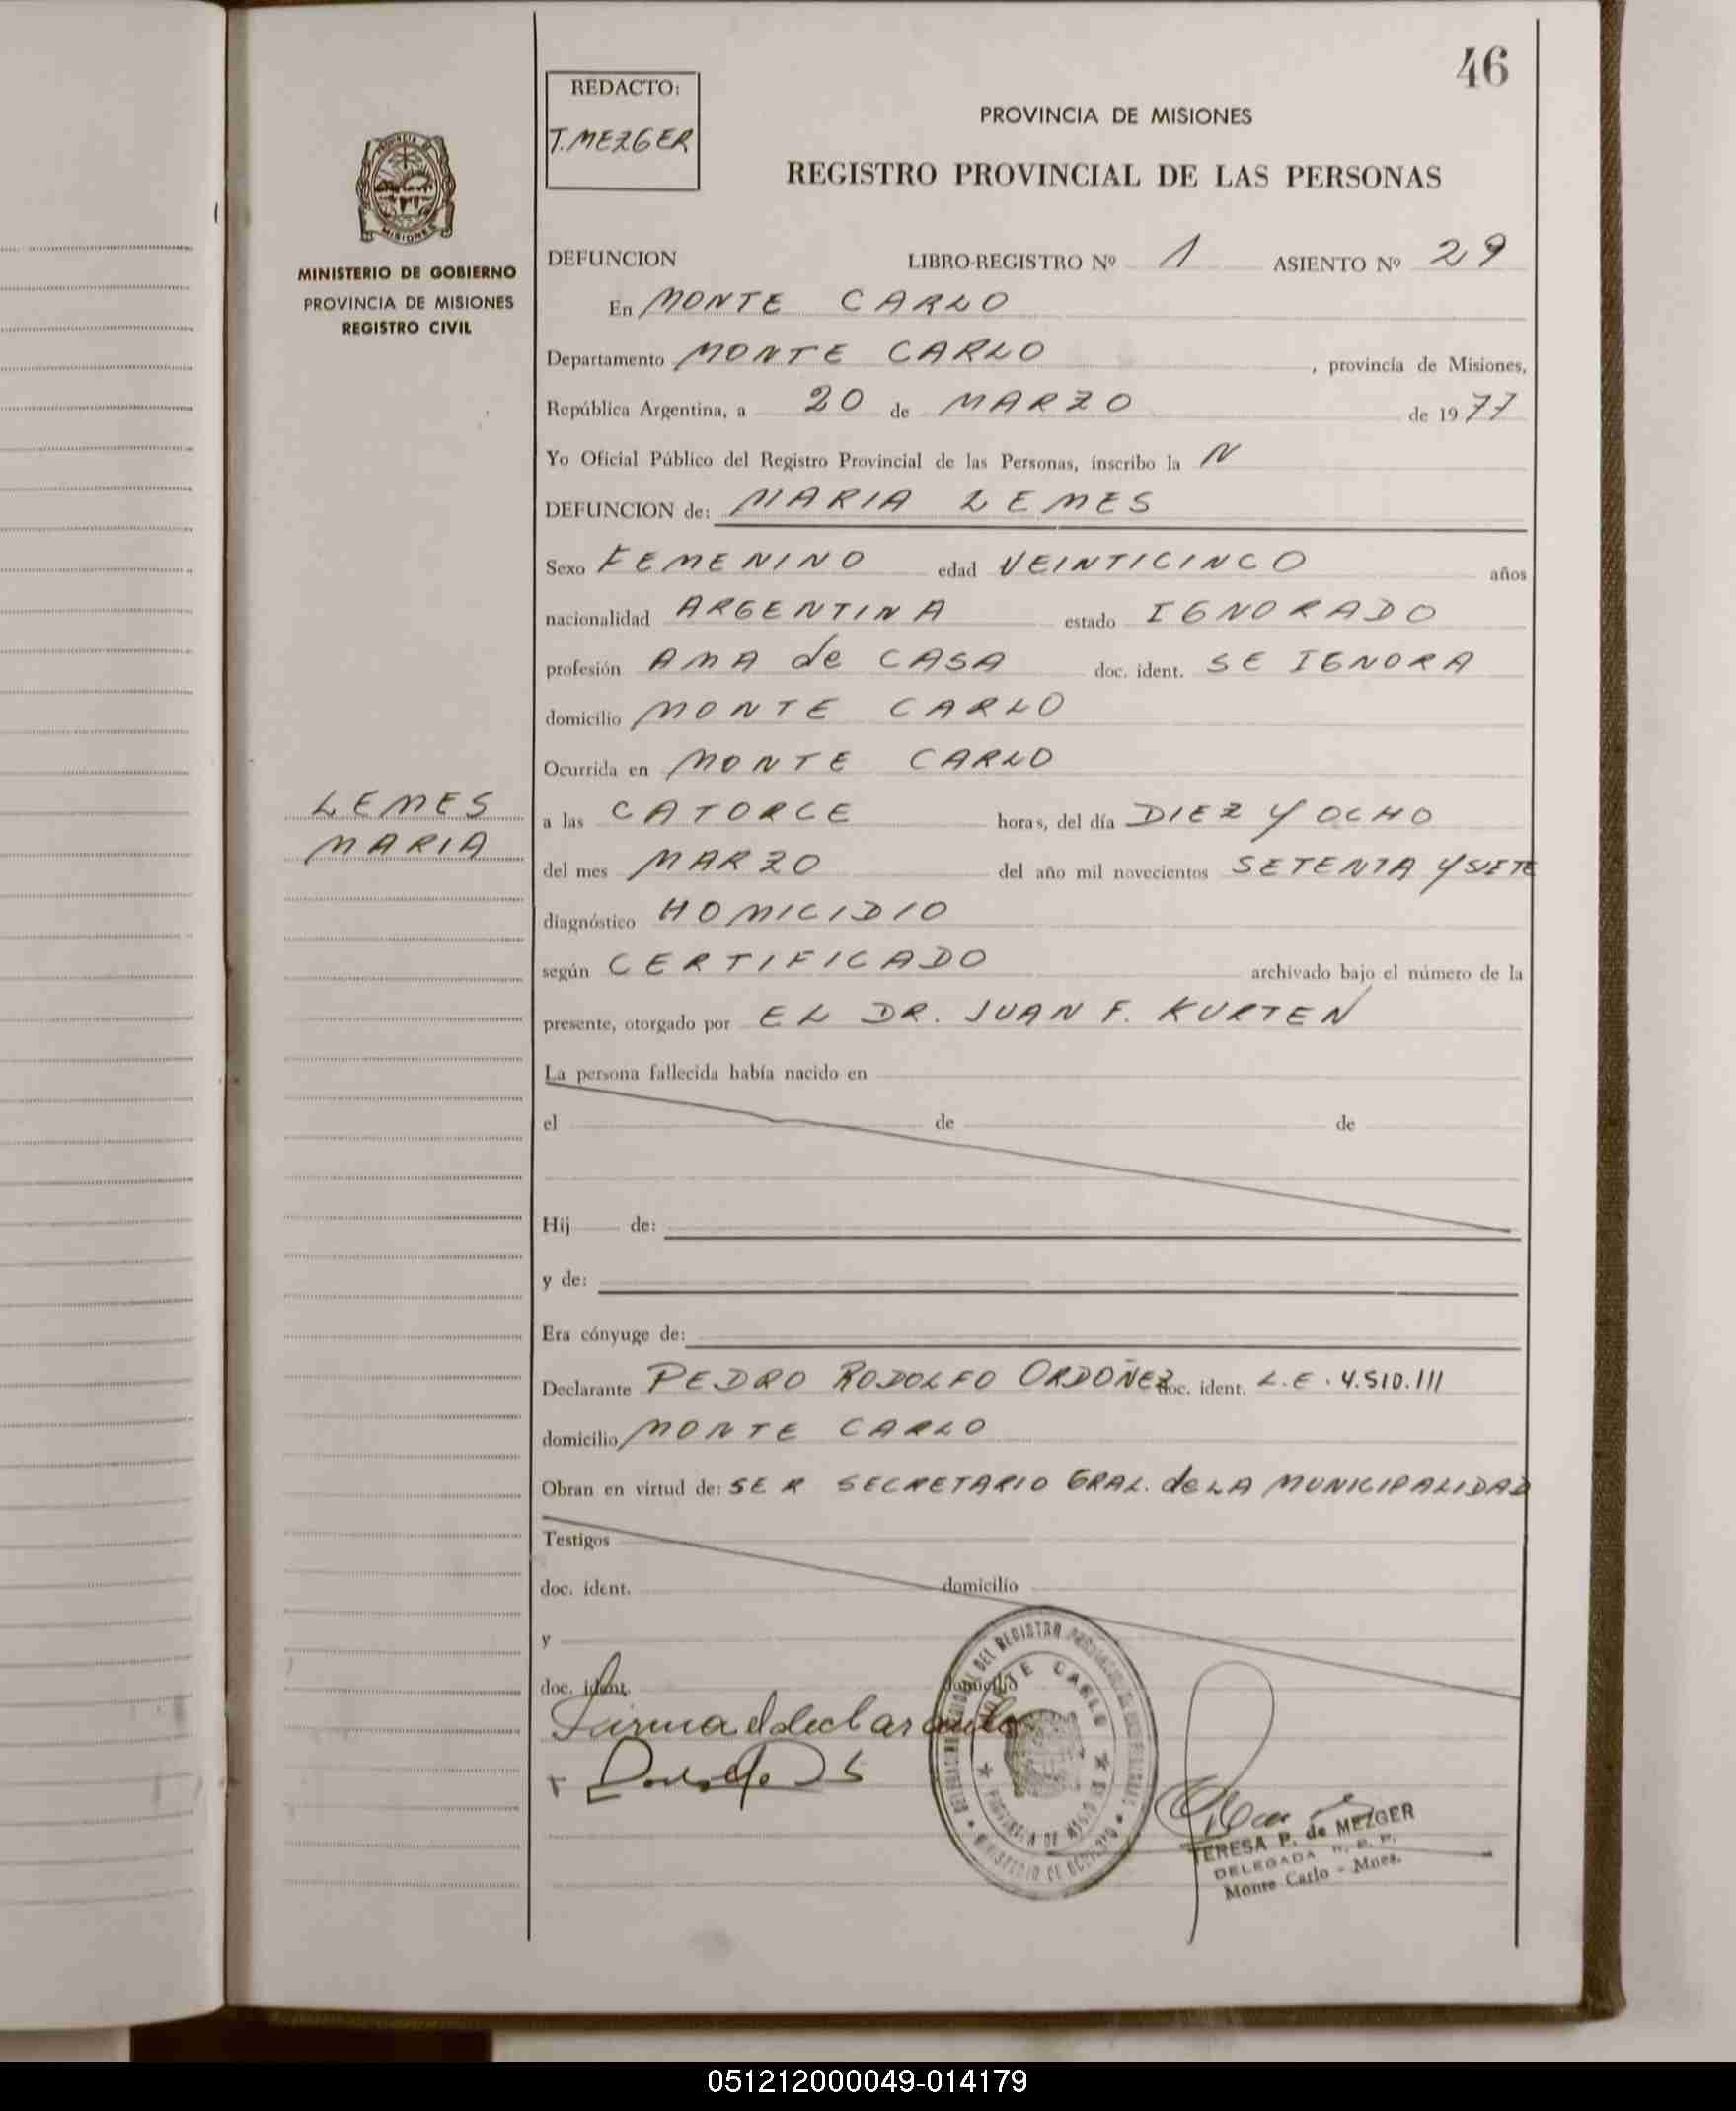 46
REDACTO:
T. MEZGER
PROVINCIA DE MISIONES
REGISTRO PROVINCIAL DE LAS PERSONAS
MISIONES
MINISTERIO DE GOBIERNO
PROVINCIA DE MISIONES
REGISTRO CIVIL
DEFUNCION LIBRO-REGISTRO Nº 1 ASIENTO Nº 29
En MONTE CARLO
Departamento MONTE CARLO , provincia de Misiones,
República Argentina, a 20 de MARZO de 1977
Yo Oficial Público del Registro Provincial de las Personas, inscribo la N
DEFUNCION de: MARIA LEMES
Sexo FEMENINO edad VEINTICINCO años
nacionalidad ARGENTINA estado IGNORADO
profesión AMA de CASA doc. ident. SE IGNORA
domicilio MONTE CARLO
Ocurrida en MONTE CARLO
LEMES
MARIA
a las CATORCE horas, del día DIEZ Y OCHO
del mes MARZO del año mil novecientos SETENTA Y SIETE
diagnóstico HOMICIDIO
según CERTIFICADO archivado bajo el número de la
presente, otorgado por EL DR. JUAN F. KURTEN
La persona fallecida había nacido en
el de de
Hij de:
y de:
Era cónyuge de:
Declarante PEDRO RODOLFO ORDOÑEZ doc. ident. L.E. 4.510.111
domicilio MONTE CARLO
Obran en virtud de: SER SECRETARIO GRAL. de LA MUNICIPALIDAD
Testigos
doc. ident. domicilio
y
doc. ident. domicilio
Firma del declarante
MONTE CARLO
PROVINCIA DE MISIONES
MINISTERIO DE GOBIERNO
TERESA P. de MEZGER
DELEGADA R. P. P.
Monte Carlo - Mnes.
051212000049-014179